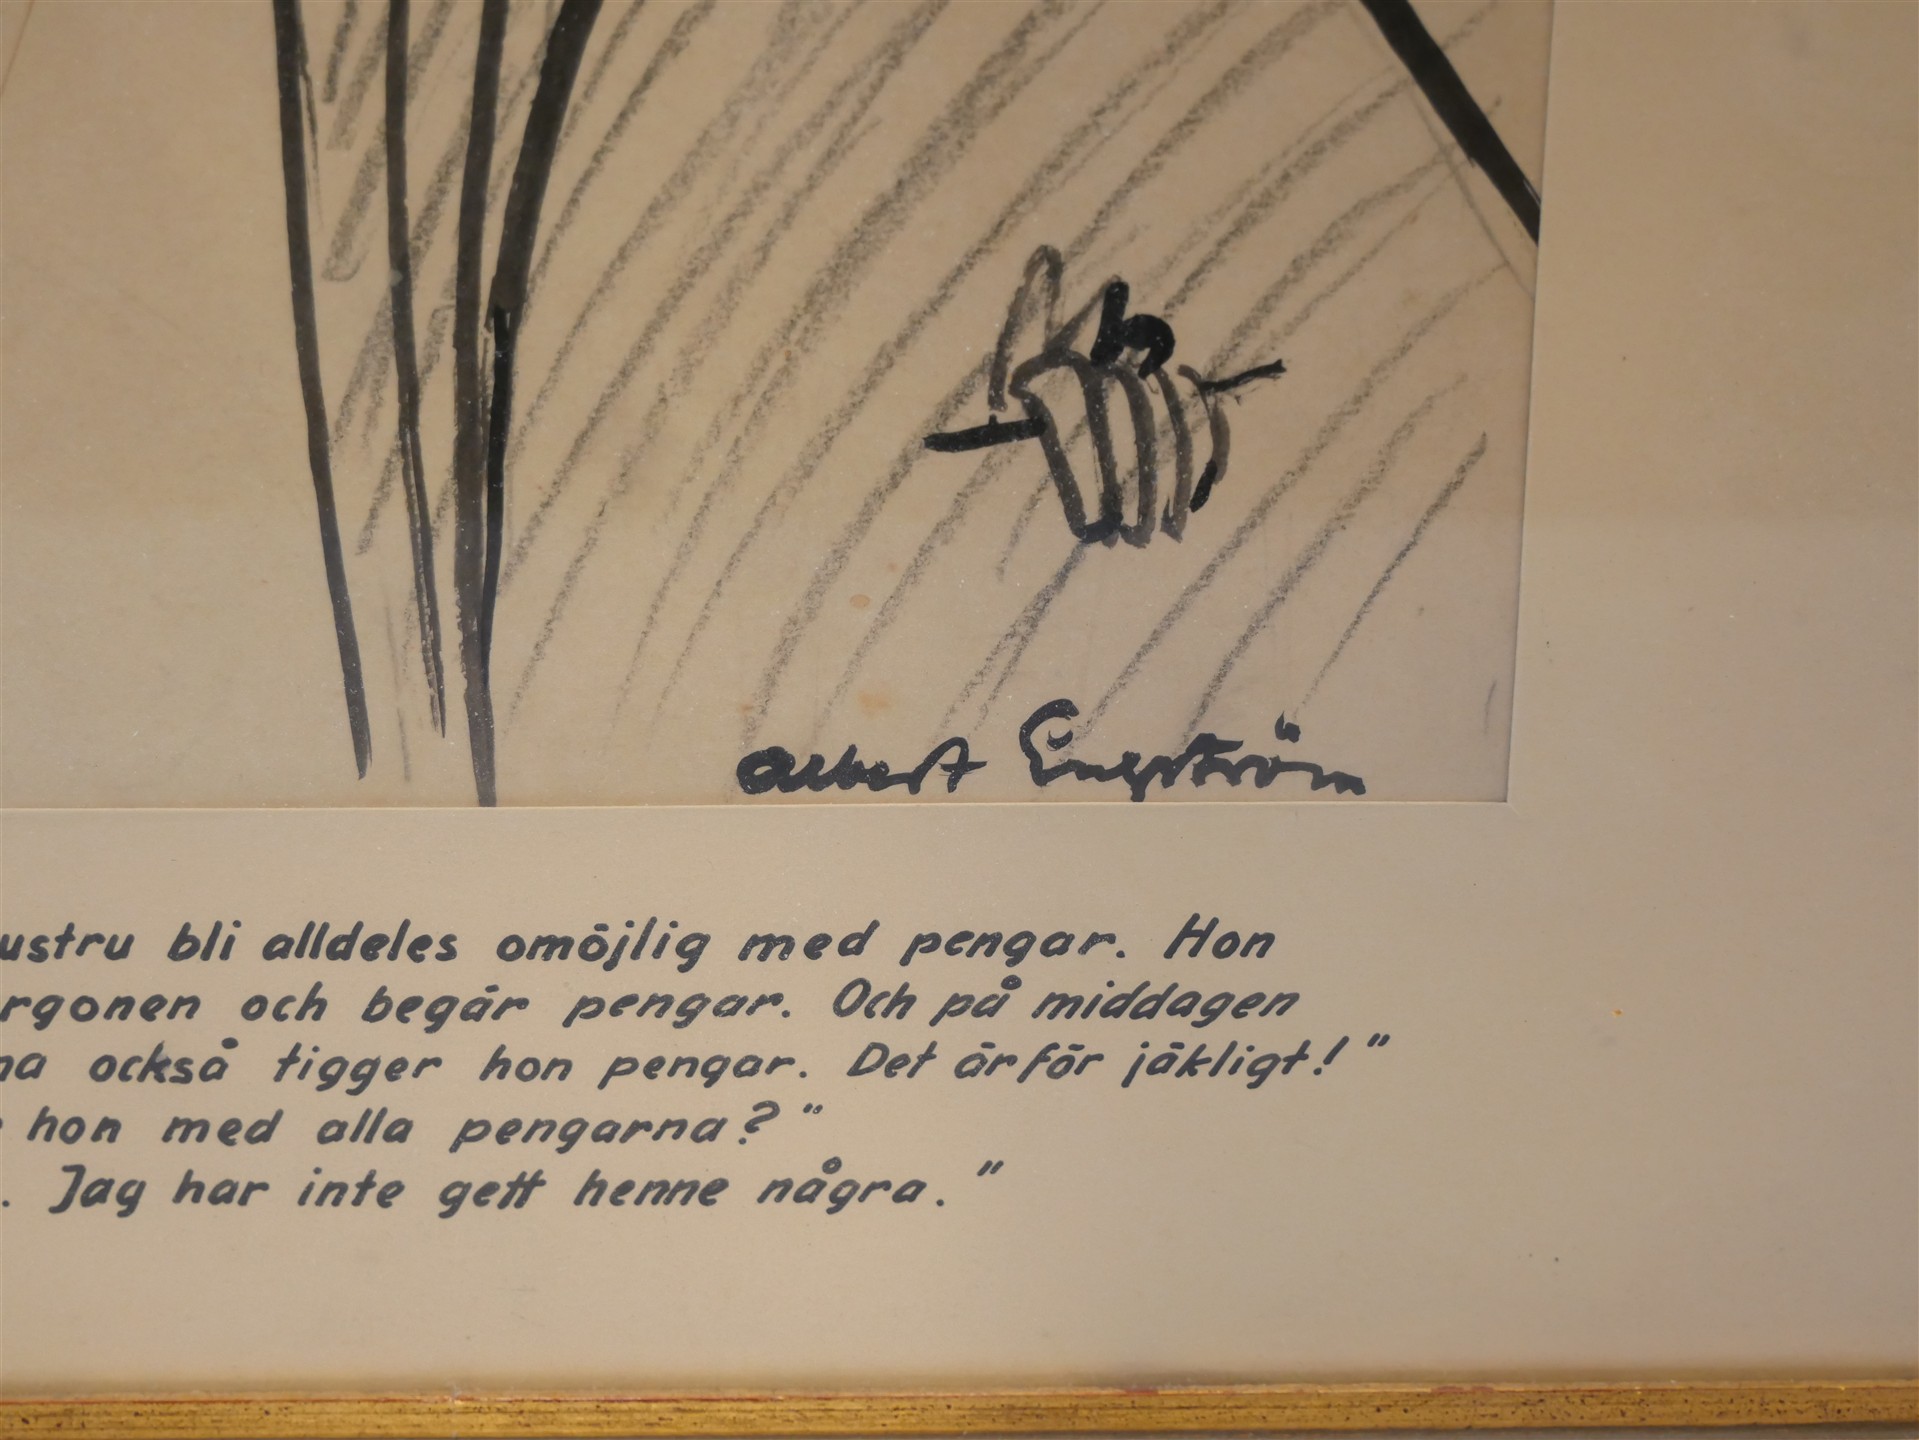 Albert Engström
ustru bli alldeles omöjlig med pengar. Hon
rgonen och begär pengar. Och på middagen
na också tigger hon pengar. Det är för jäkligt!"
hon med alla pengarna?"
. Jag har inte gett henne några."